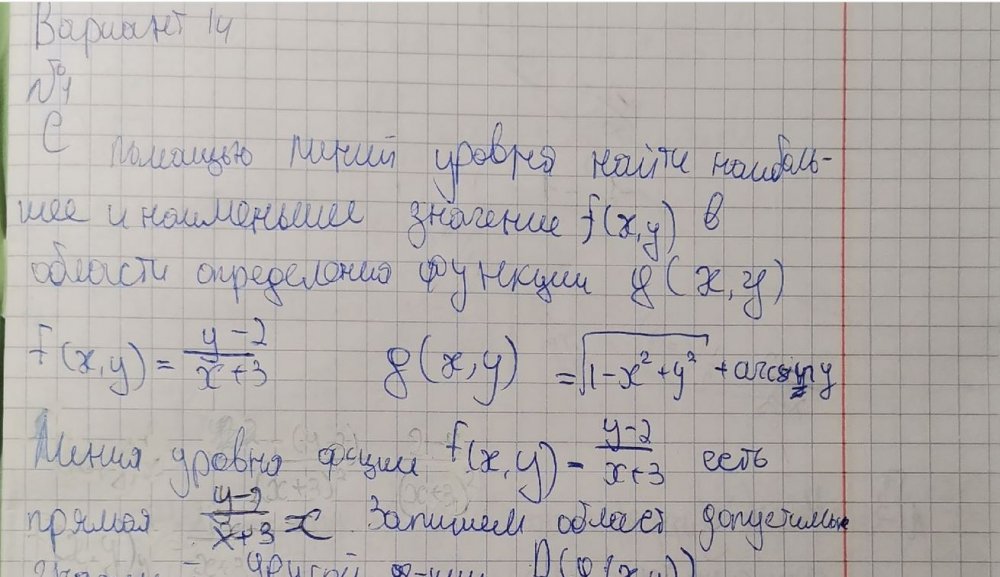 Вариант 14
№1
С помощью линий уровня найти наиболь-
шее и наименьшее значение f(x,y) в
области определения функции g(x,y)
f(x,y) = (y-2)/(x+3) g(x,y) = √(1-x²+y²) + arcsin y
Линия уровня ф-ции f(x,y) = (y-2)/(x+3) есть
прямая (y-2)/(x+3) = C Запишем област допустимых
другой ф-ции D(g(x,y))